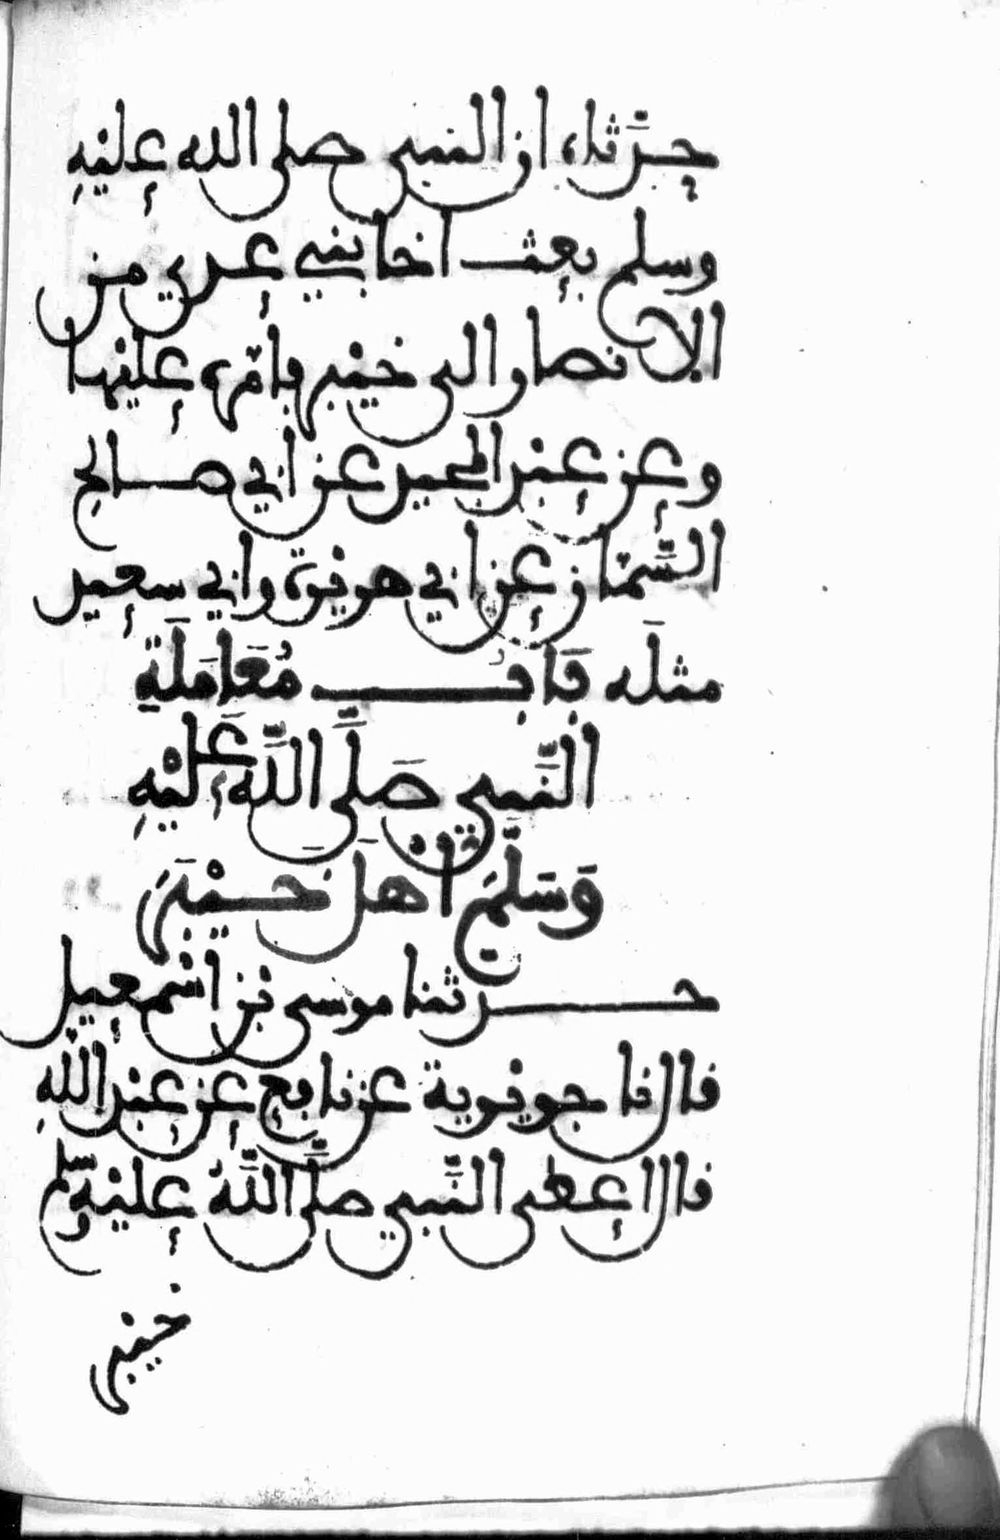 حدثاه ان النبي صلى الله عليه
وسلم بعث اخا بني عدي من
الانصار الى خيبر فامره عليها
وعن عبد المجيد عن ابي صالح
السَّمّان عن ابي هريرة وابي سعيد
مثلَه بَابُ مُعَامَلَةِ
النَّبِيِّ صَلَّى اللَّهُ عَلَيْهِ
وَسَلَّمَ اَهْلَ خَيْبَرَ
حدثنا موسى بن اسْمعيل
قال نا جويرية عن نافع عن عبد اللهِ
قال اعطى النَّبي صلَّى اللَّهُ عليْه وسلم
خيبر